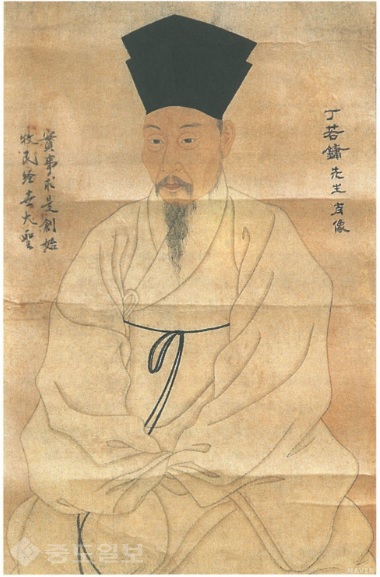 丁若鏞先生肖像
實事求是創始
牧民經世大聖
중도일보
NAVER